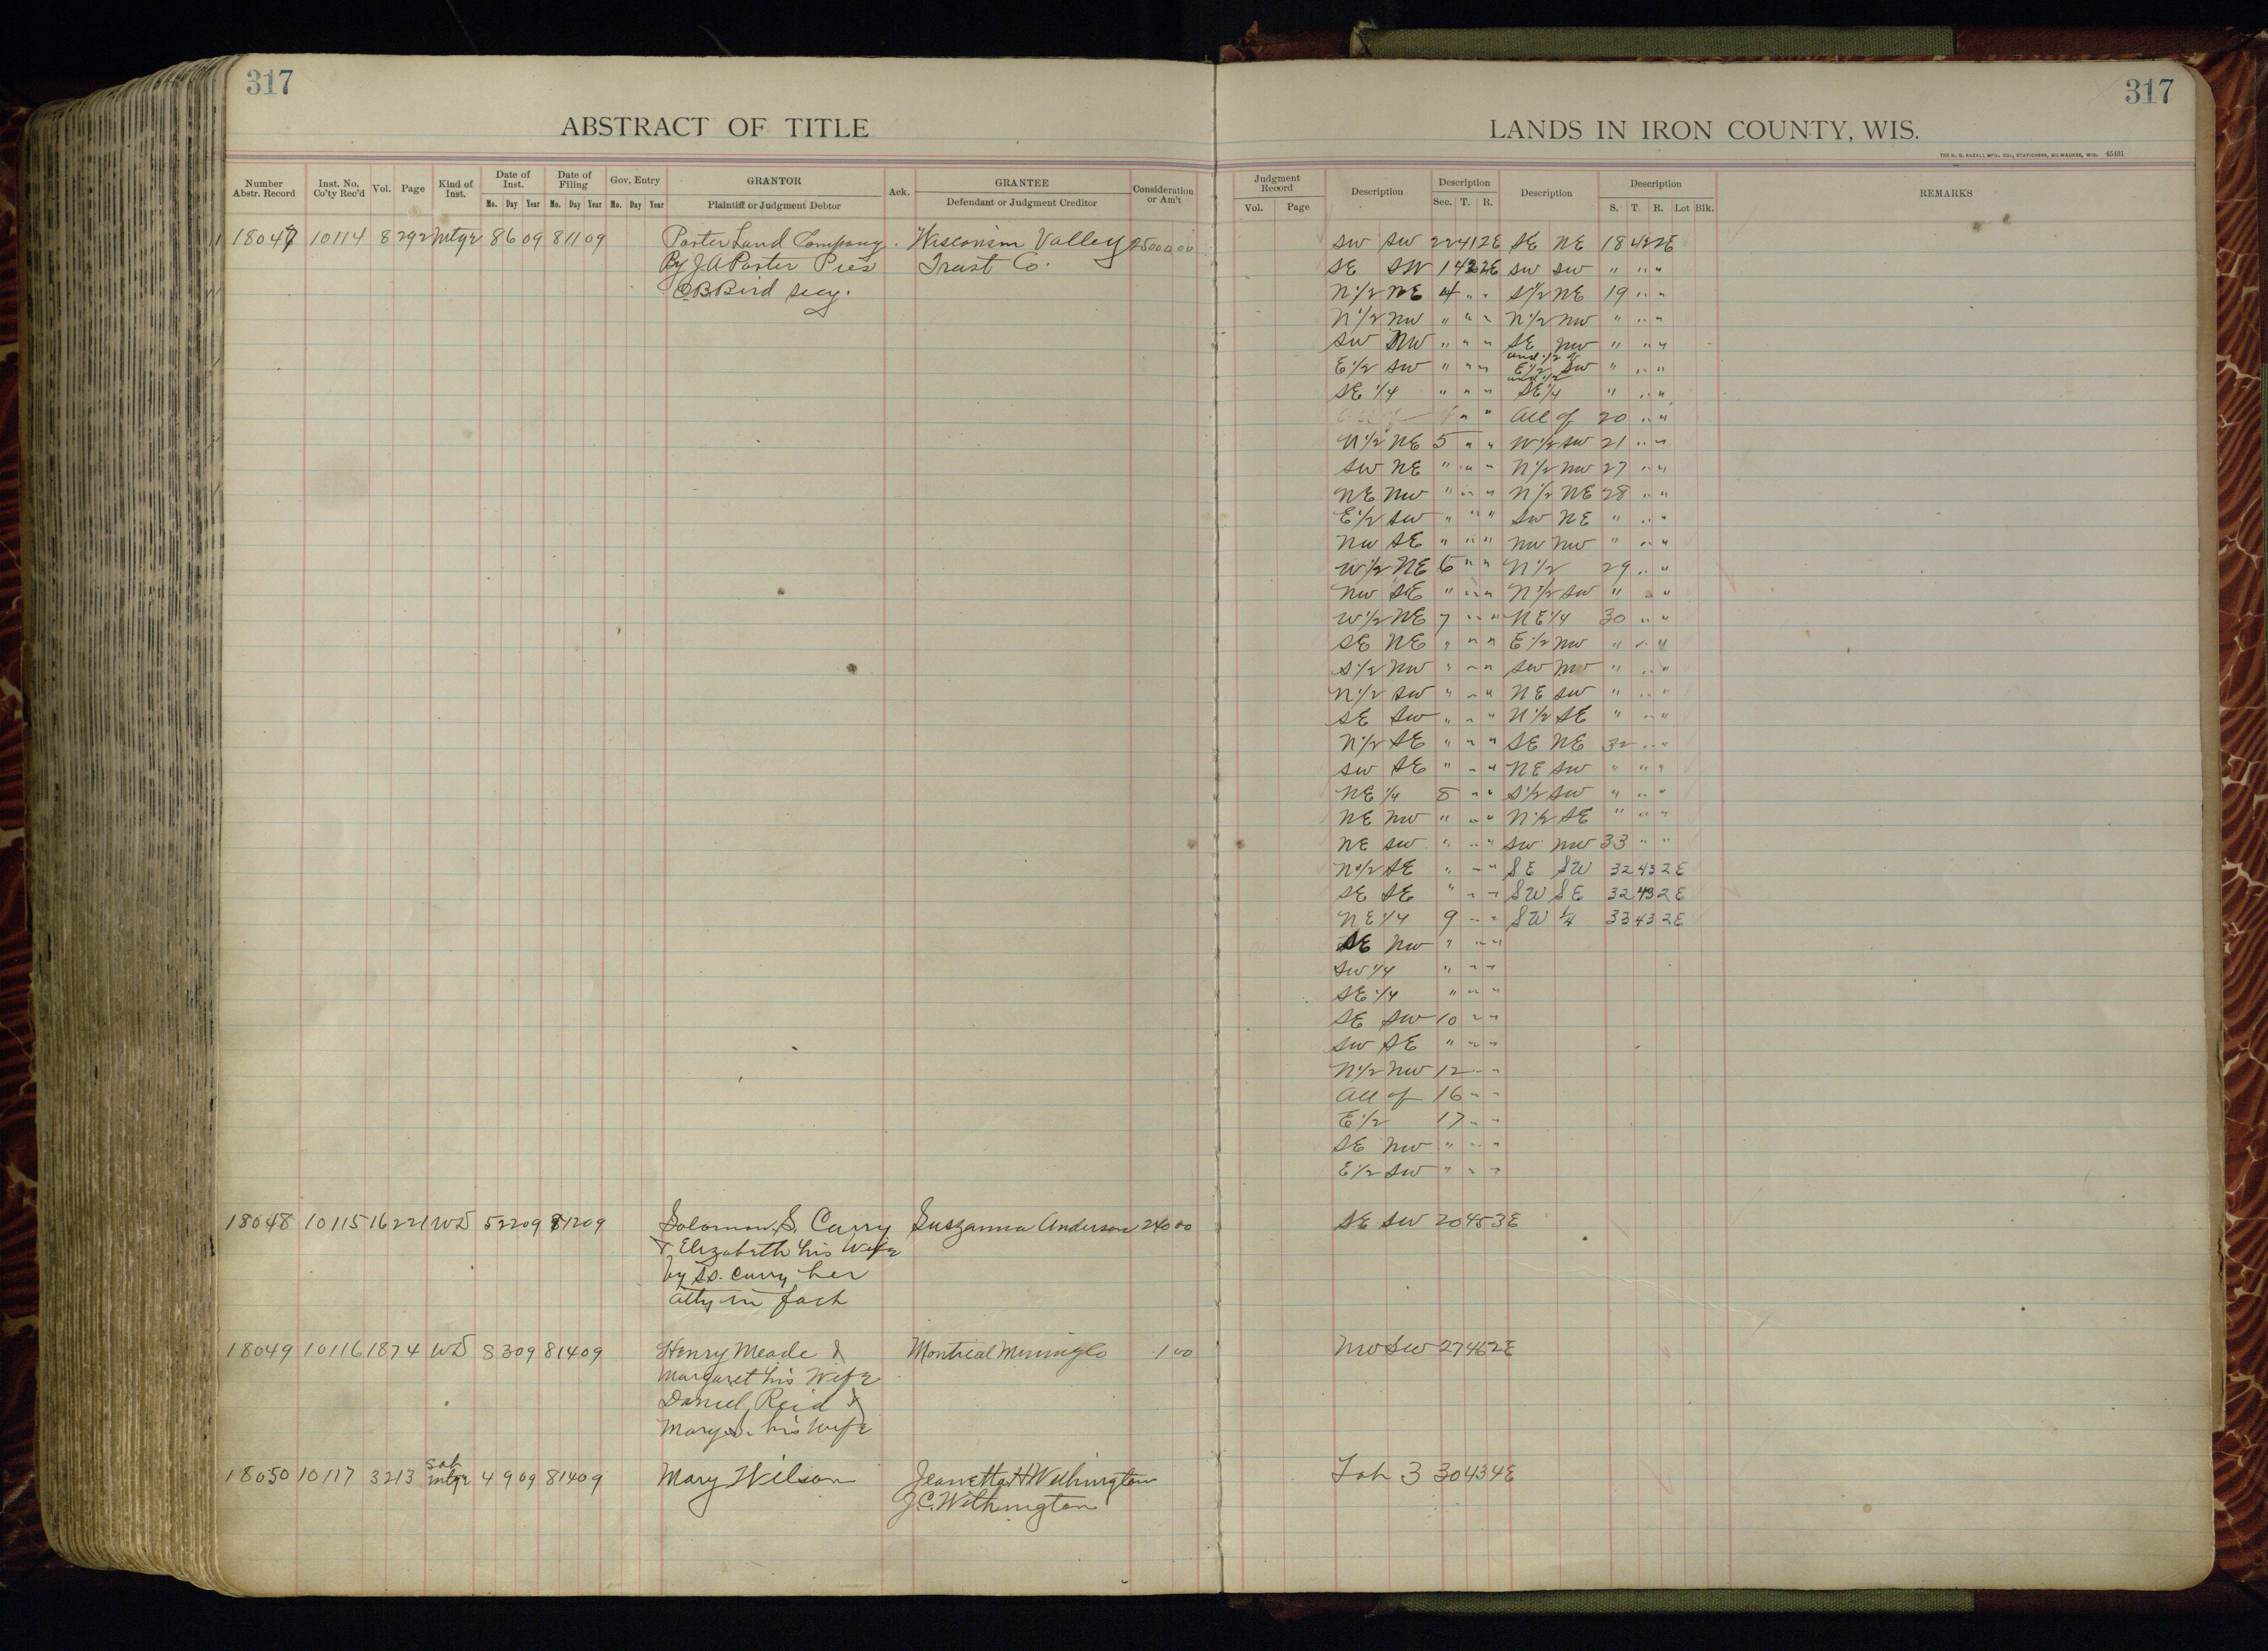 317
317
ABSTRACT OF TITLE
LANDS IN IRON COUNTY, WIS.
THE H. G. RAZALL MFG. CO., STATIONERS, MILWAUKEE, WIS. 45431
Number Abstr. Record
Inst. No. Co'ty Rec'd
Vol.
Page
Kind of Inst.
Date of Inst.
Mo. Day Year
Date of Filing
Mo. Day Year
Gov. Entry
Mo. Day Year
GRANTOR
Plaintiff or Judgment Debtor
Ack.
GRANTEE
Defendant or Judgment Creditor
Consideration or Am't
Judgment Record
Vol. Page
Description
Description
Sec. T. R.
Description
Description
S. T. R. Lot Blk.
REMARKS
18047 10114 8 292 Mtge 8 6 09 8 11 09 Porter Land Company Wisconsin Valley 25000 00
By J A Porter Pres Trust Co.
C.B. Bird Secy.
SW SW 22 41 2E SE NE 18 42 2E
SE SW 1 42 2E SW SW " " "
N 1/2 NE 4 " " S 1/2 NE 19 " "
N 1/2 NW " " " N 1/2 NW " " "
SW NW " " " SE NW " " "
E 1/2 SW " " " und 1/2 of E 1/2 SW " " "
SE 1/4 " " " und 1/2 SE 1/4 " " "
" " All of 20 " "
N 1/2 NE 5 " " W 1/2 SW 21 " "
SW NE " " " N 1/2 NW 27 " "
NE NW " " " N 1/2 NE 28 " "
E 1/2 SW " " " SW NE " " "
NW SE " " " NW NW " " "
W 1/2 NE 6 " " N 1/2 29 " "
NW SE " " " N 1/2 SW " " "
W 1/2 NE 7 " " NE 1/4 30 " "
SE NE " " " E 1/2 NW " " "
S 1/2 NW " " " SW NW " " "
N 1/2 SW " " " NE SW " " "
SE SW " " " N 1/2 SE " " "
N 1/2 SE " " " SE NE 32 " "
SW SE " " " NE SW " " "
NE 1/4 8 " " S 1/2 SW " " "
NE NW " " " N 1/2 SE " " "
NE SW " " " SW NW 33 " "
N 1/2 SE " " " SE SW 32 43 2E
SE SE " " " SW SE 32 43 2E
NE 1/4 9 " " SW 1/4 33 43 2E
SE NW " " "
SW 1/4 " " "
SE 1/4 " " "
SE SW 10 " "
SW SE " " "
N 1/2 NW 12 " "
All of 16 " "
E 1/2 17 " "
SE NW " " "
E 1/2 SW " " "
18048 10115 16 221 WD 5 22 09 8 12 09 Solomon S. Curry Suszanna Anderson 240 00 SE SW 20 45 3E
& Elizabeth his Wife
by S.S. Curry her
atty in fact
18049 10116 18 74 WD 8 3 09 8 14 09 Henry Meade & Montreal Mining Co 1 00 NW SW 27 46 2E
Margaret his Wife
Daniel Reid &
Mary S. his Wife
18050 10117 3 213 Sat Mtge 4 9 09 8 14 09 Mary Wilson Jeanetta H Withington Lot 3 30 43 4E
J.C. Withington